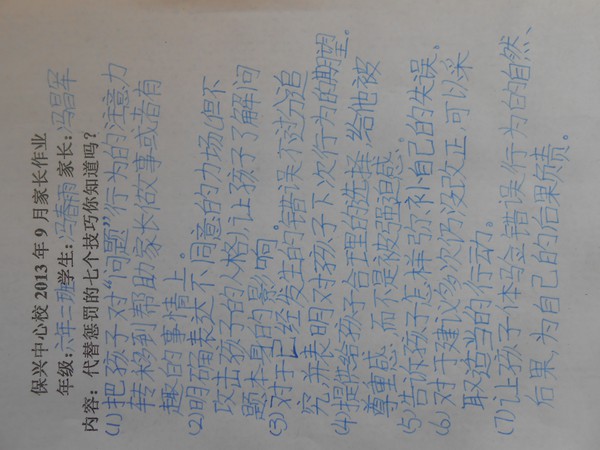 保兴中心校 2013 年 9 月家长作业
年级:六年二班学生:冯春雨 家长:冯昌军
内容:代替惩罚的七个技巧你知道吗?
(1)把孩子对“问题”行为的注意力
转移到帮助家长做事或者有
趣的事情上。
(2)明确表达不同意的力场(但不
攻击孩子的人格),让孩子了解问
题本身的影响。
(3)对于已经发生的错误不过分追
究,并表明对孩子下次行为的期望。
(4)提供给孩子合理的选择,给他被
尊重感,而不是被强迫感。
(5)告诉孩子怎样弥补自己的失误。
(6)对于建议多次仍没改正,可以采
取适当的行动。
(7)让孩子体验错误行为的自然、
后果,为自己的后果负责。